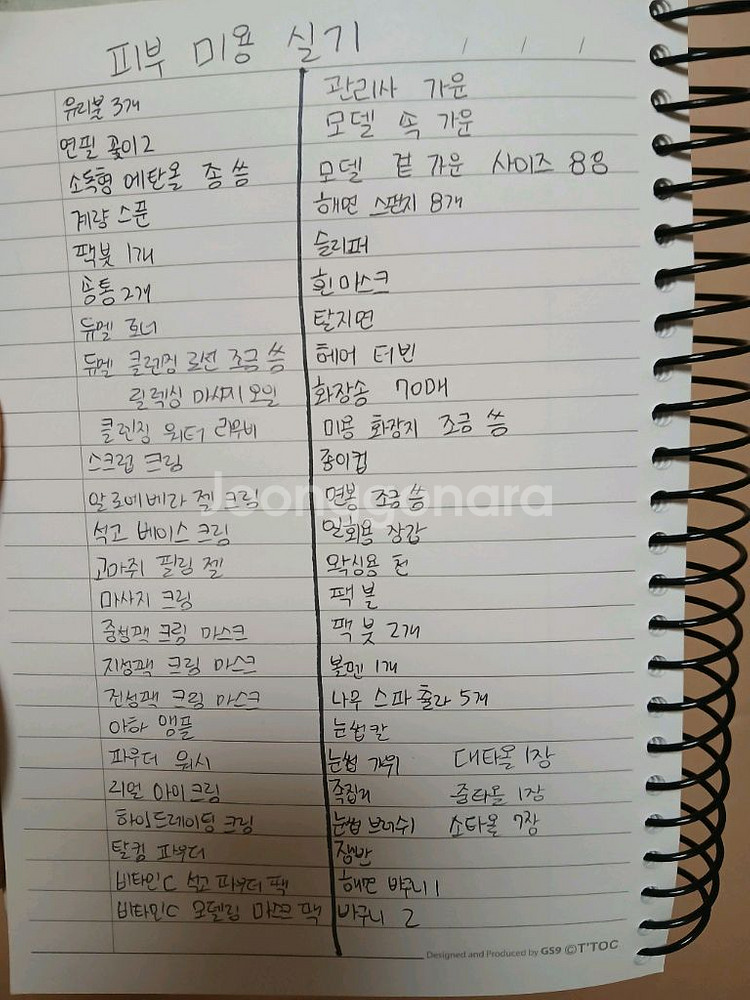 피부 미용 실기 / / /
유리볼 3개
연필 꽂이 2
소독형 에탄올 좀 씀
계량 스푼
팩붓 1개
용통 2개
듀멜 토너
듀멜 클렌징 로션 조금 씀
릴렉싱 마사지 오일
클렌징 워터 리무버
스크럽 크림
알로에베라 젤 크림
석고 베이스 크림
고마쥐 필링 젤
마사지 크림
중성팩 크림 마스크
지성팩 크림 마스크
건성팩 크림 마스크
아하 앰플
파우더 워시
리얼 아이 크림
하이드레이팅 크림
탈컴 파우더
비타민C 석고 파우더 팩
비타민C 모델링 마스크 팩
관리사 가운
모델 속 가운
모델 겉 가운 사이즈 88
해면 스펀지 8개
슬리퍼
흰 마스크
탈지면
헤어 터번
화장솜 70매
미용 화장지 조금 씀
종이컵
면봉 조금 씀
일회용 장갑
왁싱용 천
팩 볼
팩 붓 2개
볼펜 1개
나무 스파츌라 5개
눈썹칼
눈썹 가위 대타올 1장
족집게 중타올 1장
눈썹 브러쉬 소타올 7장
쟁반
해면 바구니 1
바구니 2
Designed and Produced by GS9 © T'TOC
Joonggonara